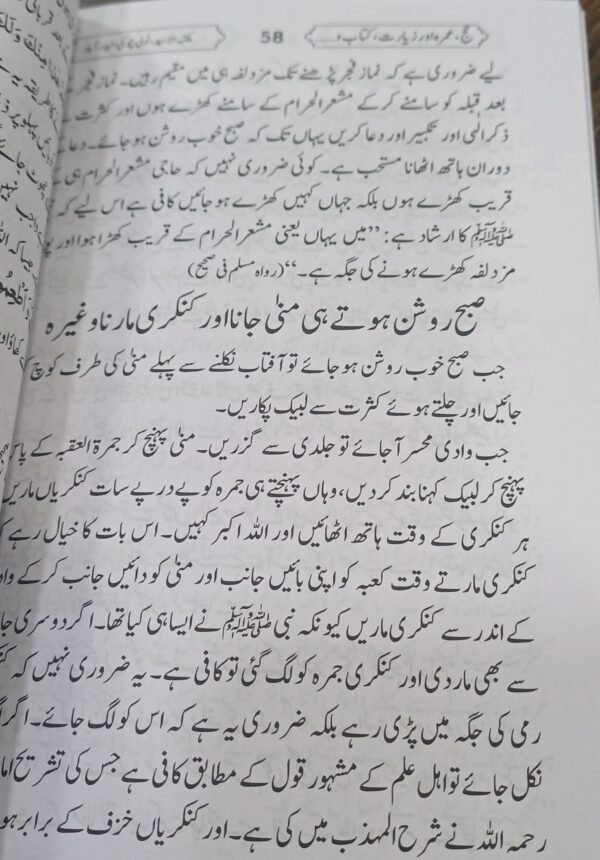 حج، عمرہ اور زیارت، کتاب و
58
لیے ضروری ہے کہ نماز فجر پڑھنے تک مزدلفہ ہی میں مقیم رہیں۔ نماز فجر کے
بعد قبلہ کو سامنے کر کے مشعر الحرام کے سامنے کھڑے ہوں اور کثرت
ذکر الٰہی اور تکبیر اور دعا کریں یہاں تک کہ صبح خوب روشن ہو جائے۔ دعا کے
دوران ہاتھ اٹھانا مستحب ہے۔ کوئی ضروری نہیں کہ حاجی مشعر الحرام ہی کے
قریب کھڑے ہوں بلکہ جہاں کہیں کھڑے ہو جائیں کافی ہے اس لیے کہ
ﷺ کا ارشاد ہے: ”میں یہاں یعنی مشعر الحرام کے قریب کھڑا ہوا اور
مزدلفہ کھڑے ہونے کی جگہ ہے۔“ (رواہ مسلم فی صحیح)
صبح روشن ہوتے ہی منیٰ جانا اور کنکری مارنا وغیرہ
جب صبح خوب روشن ہو جائے تو آفتاب نکلنے سے پہلے منیٰ کی طرف کوچ
جائیں اور چلتے ہوئے کثرت سے لبیک پکاریں۔
جب وادی محسر آ جائے تو جلدی سے گزریں۔ منیٰ پہنچ کر جمرۃ العقبہ کے پاس
پہنچ کر لبیک کہنا بند کر دیں، وہاں پہنچتے ہی جمرہ کو پے در پے سات کنکریاں ماریں
ہر کنکری کے وقت ہاتھ اٹھائیں اور اللہ اکبر کہیں۔ اس بات کا خیال رہے
کنکری مارتے وقت کعبہ کو اپنی بائیں جانب اور منیٰ کو دائیں جانب کر کے
کے اندر سے کنکری ماریں کیونکہ نبی ﷺ نے ایسا ہی کیا تھا۔ اگر دوسری
سے بھی مار دی اور کنکری جمرہ کو لگ گئی تو کافی ہے۔ یہ ضروری نہیں کہ
رمی کی جگہ میں پڑی رہے بلکہ ضروری یہ ہے کہ اس کو لگ جائے۔ اگر
نکل جائے تو اہل علم کے مشہور قول کے مطابق کافی ہے جس کی تشریح
رحمہ اللہ نے شرح المہذب میں کی ہے۔ اور کنکریاں خزف کے برابر